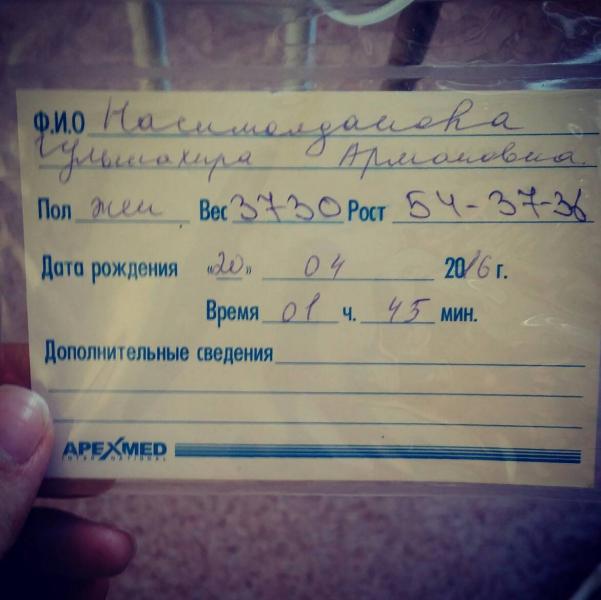 Ф.И.О Насимолданова
Гульшахира Армановна.
Пол жен Вес 3730 Рост 54-37-36
Дата рождения «20» 04 2016 г.
Время 01 ч. 45 мин.
Дополнительные сведения
APEXMED
INTERNATIONAL